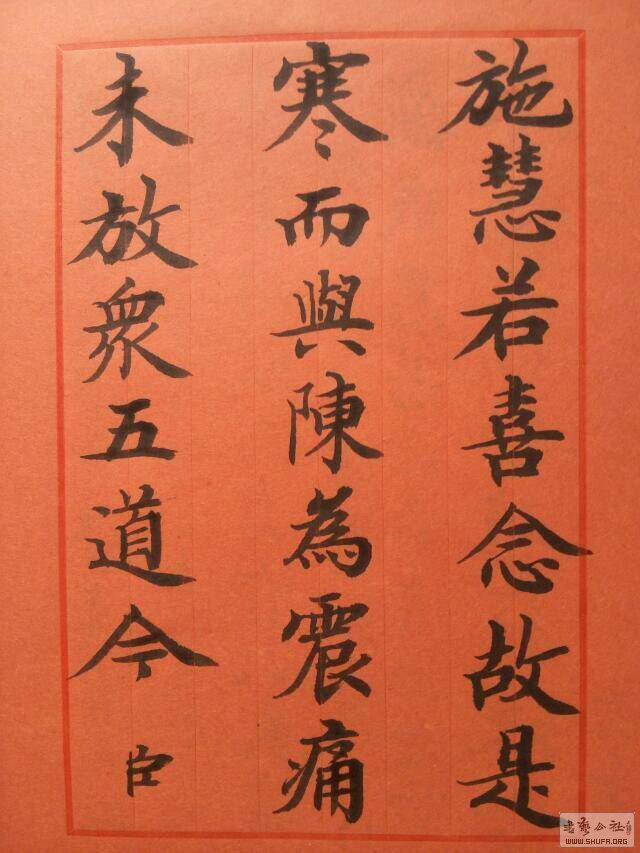 施慧若喜念故是
寒而與陳為震痛
未放衆五道今
臣
书艺公社
WWW.SHUFA.ORG